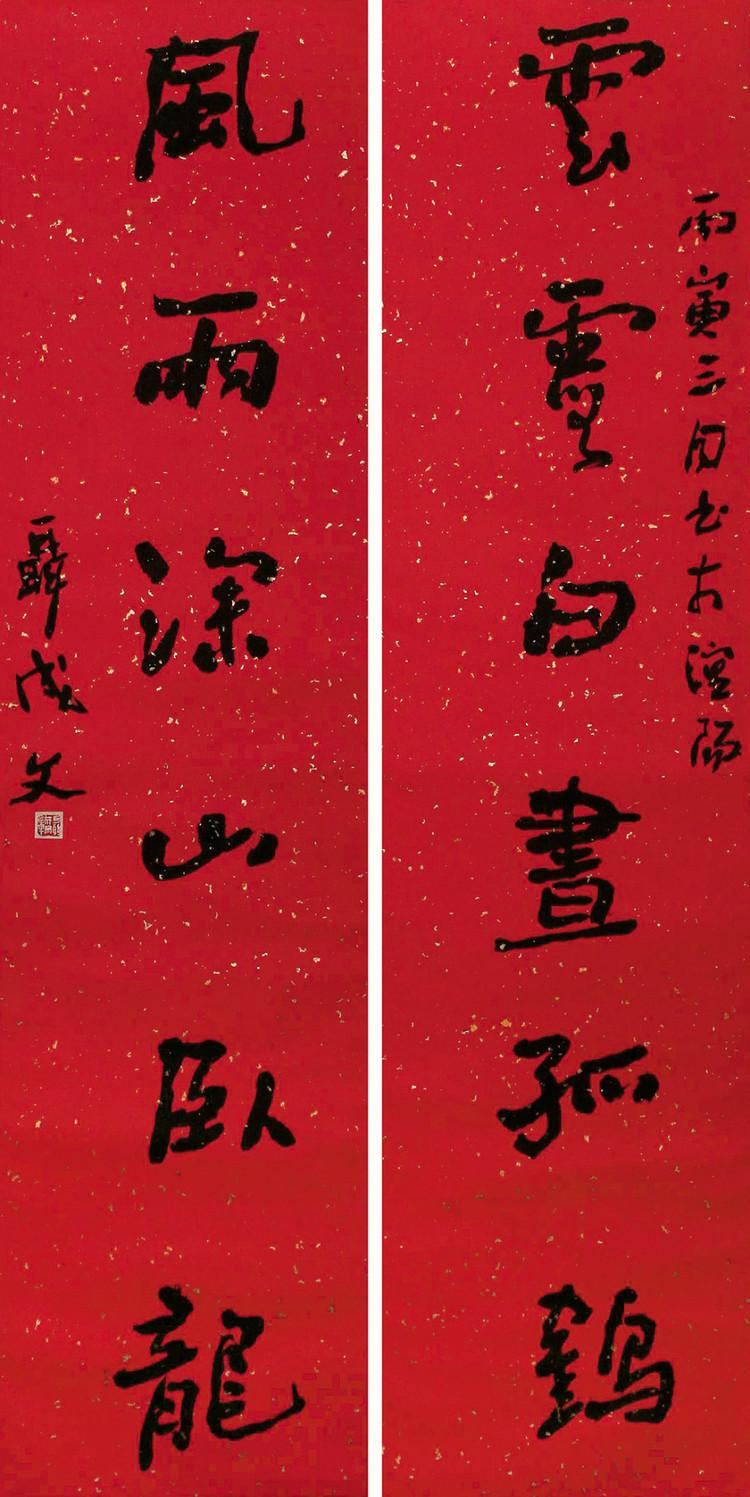 雲霄白晝孤鶴
丙寅三月书于瀋陽
風雨深山臥龍
聶成文